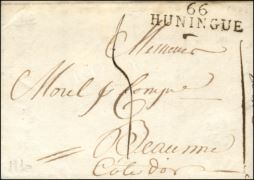 66
HUNINGUE
Messieurs
Morel & Compe
Beaune
Côte d'or